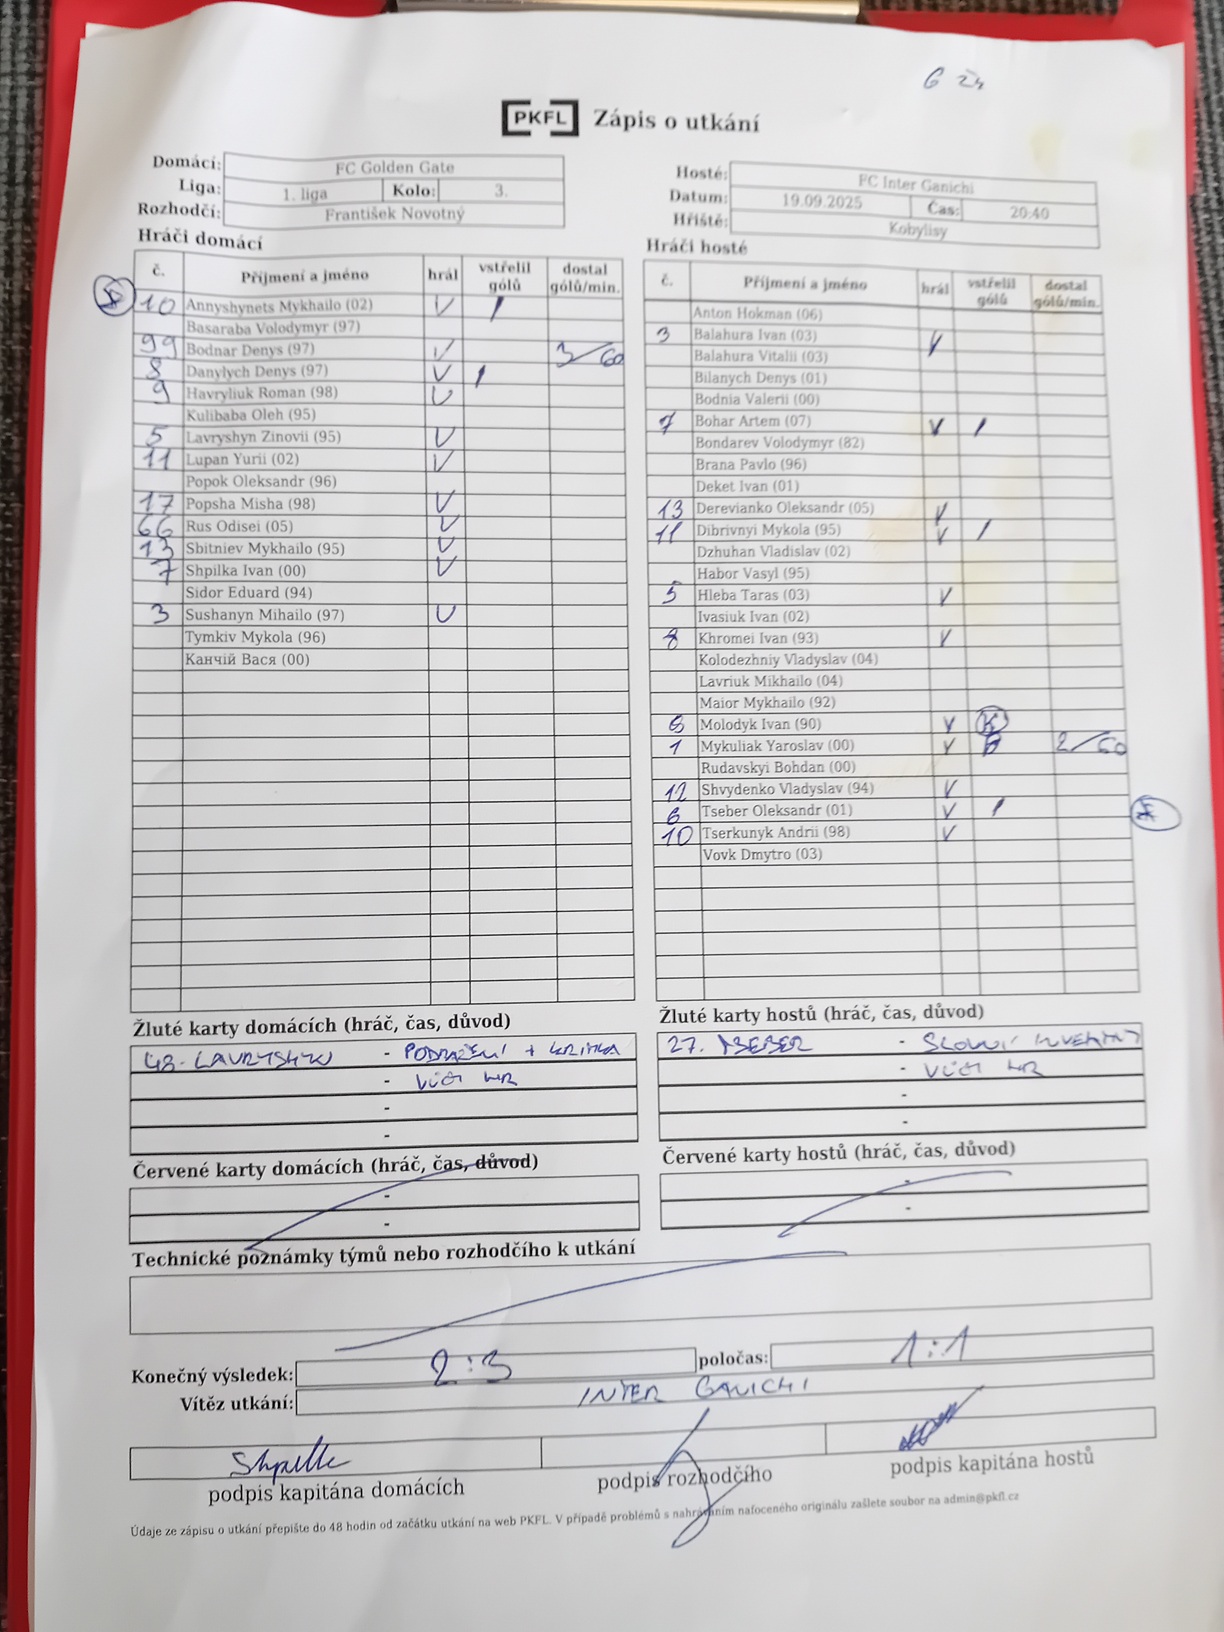 PKFL Zápis o utkání
Domácí: FC Golden Gate
Liga: 1. liga Kolo: 3.
Rozhodčí: František Novotný
Hosté: FC Inter Ganichi
Datum: 19.09.2025 Čas: 20:40
Hřiště: Kobylisy
Hráči domácí
č. Příjmení a jméno hrál vstřelil gólů dostal gólů/min.
10 Annyshynets Mykhailo (02) V /
Basaraba Volodymyr (97)
99 Bodnar Denys (97) V 3/60
8 Danylych Denys (97) V /
9 Havryliuk Roman (98) V
Kulibaba Oleh (95)
5 Lavryshyn Zinovii (95) V
11 Lupan Yurii (02) V
Popok Oleksandr (96)
17 Popsha Misha (98) V
66 Rus Odisei (05) V
13 Sbitniev Mykhailo (95) V
7 Shpilka Ivan (00) V
Sidor Eduard (94)
3 Sushanyn Mihailo (97) V
Tymkiv Mykola (96)
Канчій Вася (00)
Hráči hosté
č. Příjmení a jméno hrál vstřelil gólů dostal gólů/min.
Anton Hokman (06)
3 Balahura Ivan (03) V
Balahura Vitalii (03)
Bilanych Denys (01)
Bodnia Valerii (00)
7 Bohar Artem (07) V /
Bondarev Volodymyr (82)
Brana Pavlo (96)
Deket Ivan (01)
13 Derevianko Oleksandr (05) V
11 Dibrivnyi Mykola (95) V /
Dzhuhan Vladislav (02)
Habor Vasyl (95)
5 Hleba Taras (03) V
Ivasiuk Ivan (02)
8 Khromei Ivan (93) V
Kolodezhniy Vladyslav (04)
Lavriuk Mikhailo (04)
Maior Mykhailo (92)
Molodyk Ivan (90) V K
1 Mykuliak Yaroslav (00) V 2/60
Rudavskyi Bohdan (00)
12 Shvydenko Vladyslav (94) V
6 Tseber Oleksandr (01) V /
10 Tserkunyk Andrii (98) V
Vovk Dmytro (03)
Žluté karty domácích (hráč, čas, důvod)
48. LAVRYSHYN - PODRAŽENÍ + KRITIKA
- VŮČI HR
-
-
Žluté karty hostů (hráč, čas, důvod)
27. TSEBER - SLOVNÍ INVEKTIVY
- VŮČI HR
-
-
Červené karty domácích (hráč, čas, důvod)
-
-
Červené karty hostů (hráč, čas, důvod)
-
-
Technické poznámky týmů nebo rozhodčího k utkání
Konečný výsledek: 2:3 poločas: 1:1
Vítěz utkání: INTER GANICHI
podpis kapitána domácích podpis rozhodčího podpis kapitána hostů
Údaje ze zápisu o utkání přepište do 48 hodin od začátku utkání na web PKFL. V případě problémů s nahráváním nafoceného originálu zašlete soubor na admin@pkfl.cz